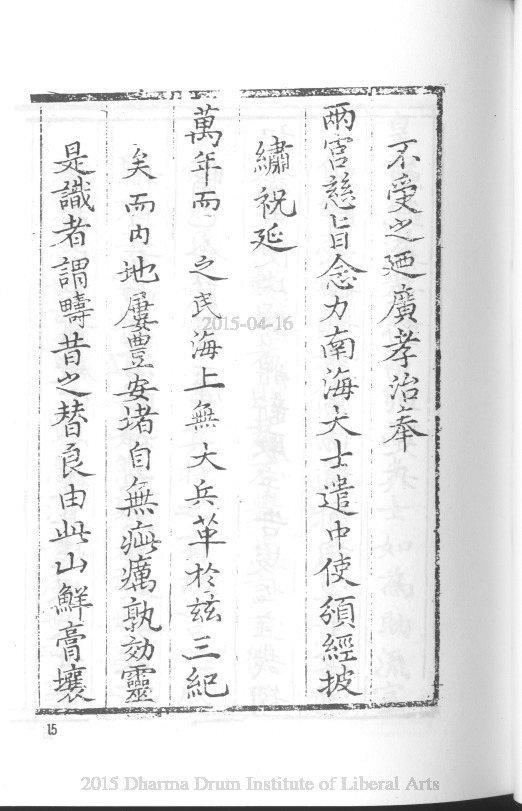 不受之廼廣孝治奉
兩宮慈旨念力南海大士遣中使頒經披
繡祝延
萬年而 之民海上無大兵革於茲三紀
矣而內地屢豐安堵自無疵癘孰効靈
是識者謂疇昔之替良由此山鮮膏壤
15
2015-04-16
2015 Dharma Drum Institute of Liberal Arts